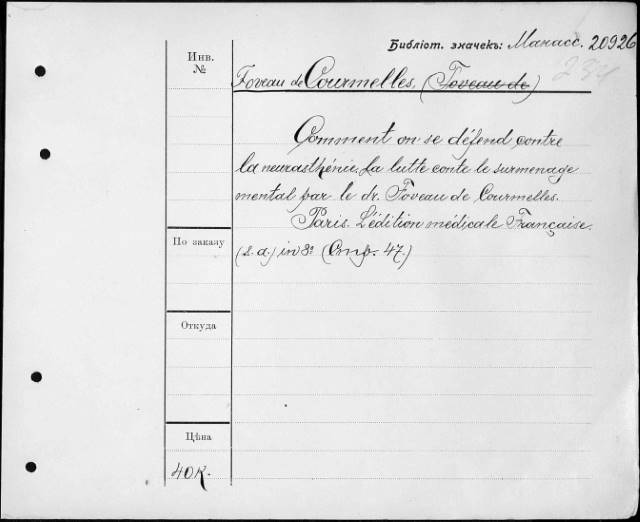 Библіот. значекъ: Манасс. 20926
234
Инв.
№
Foveau de Courmelles, (Foveau de)
Comment on se défend contre
la neurasthénie. La lutte conte le surmenage
mental par le dr. Foveau de Courmelles.
Paris. L'édition médicale Française.
По заказу
(s. a.) in 8º (Стр. 47.)
Откуда
Цѣна
40к.